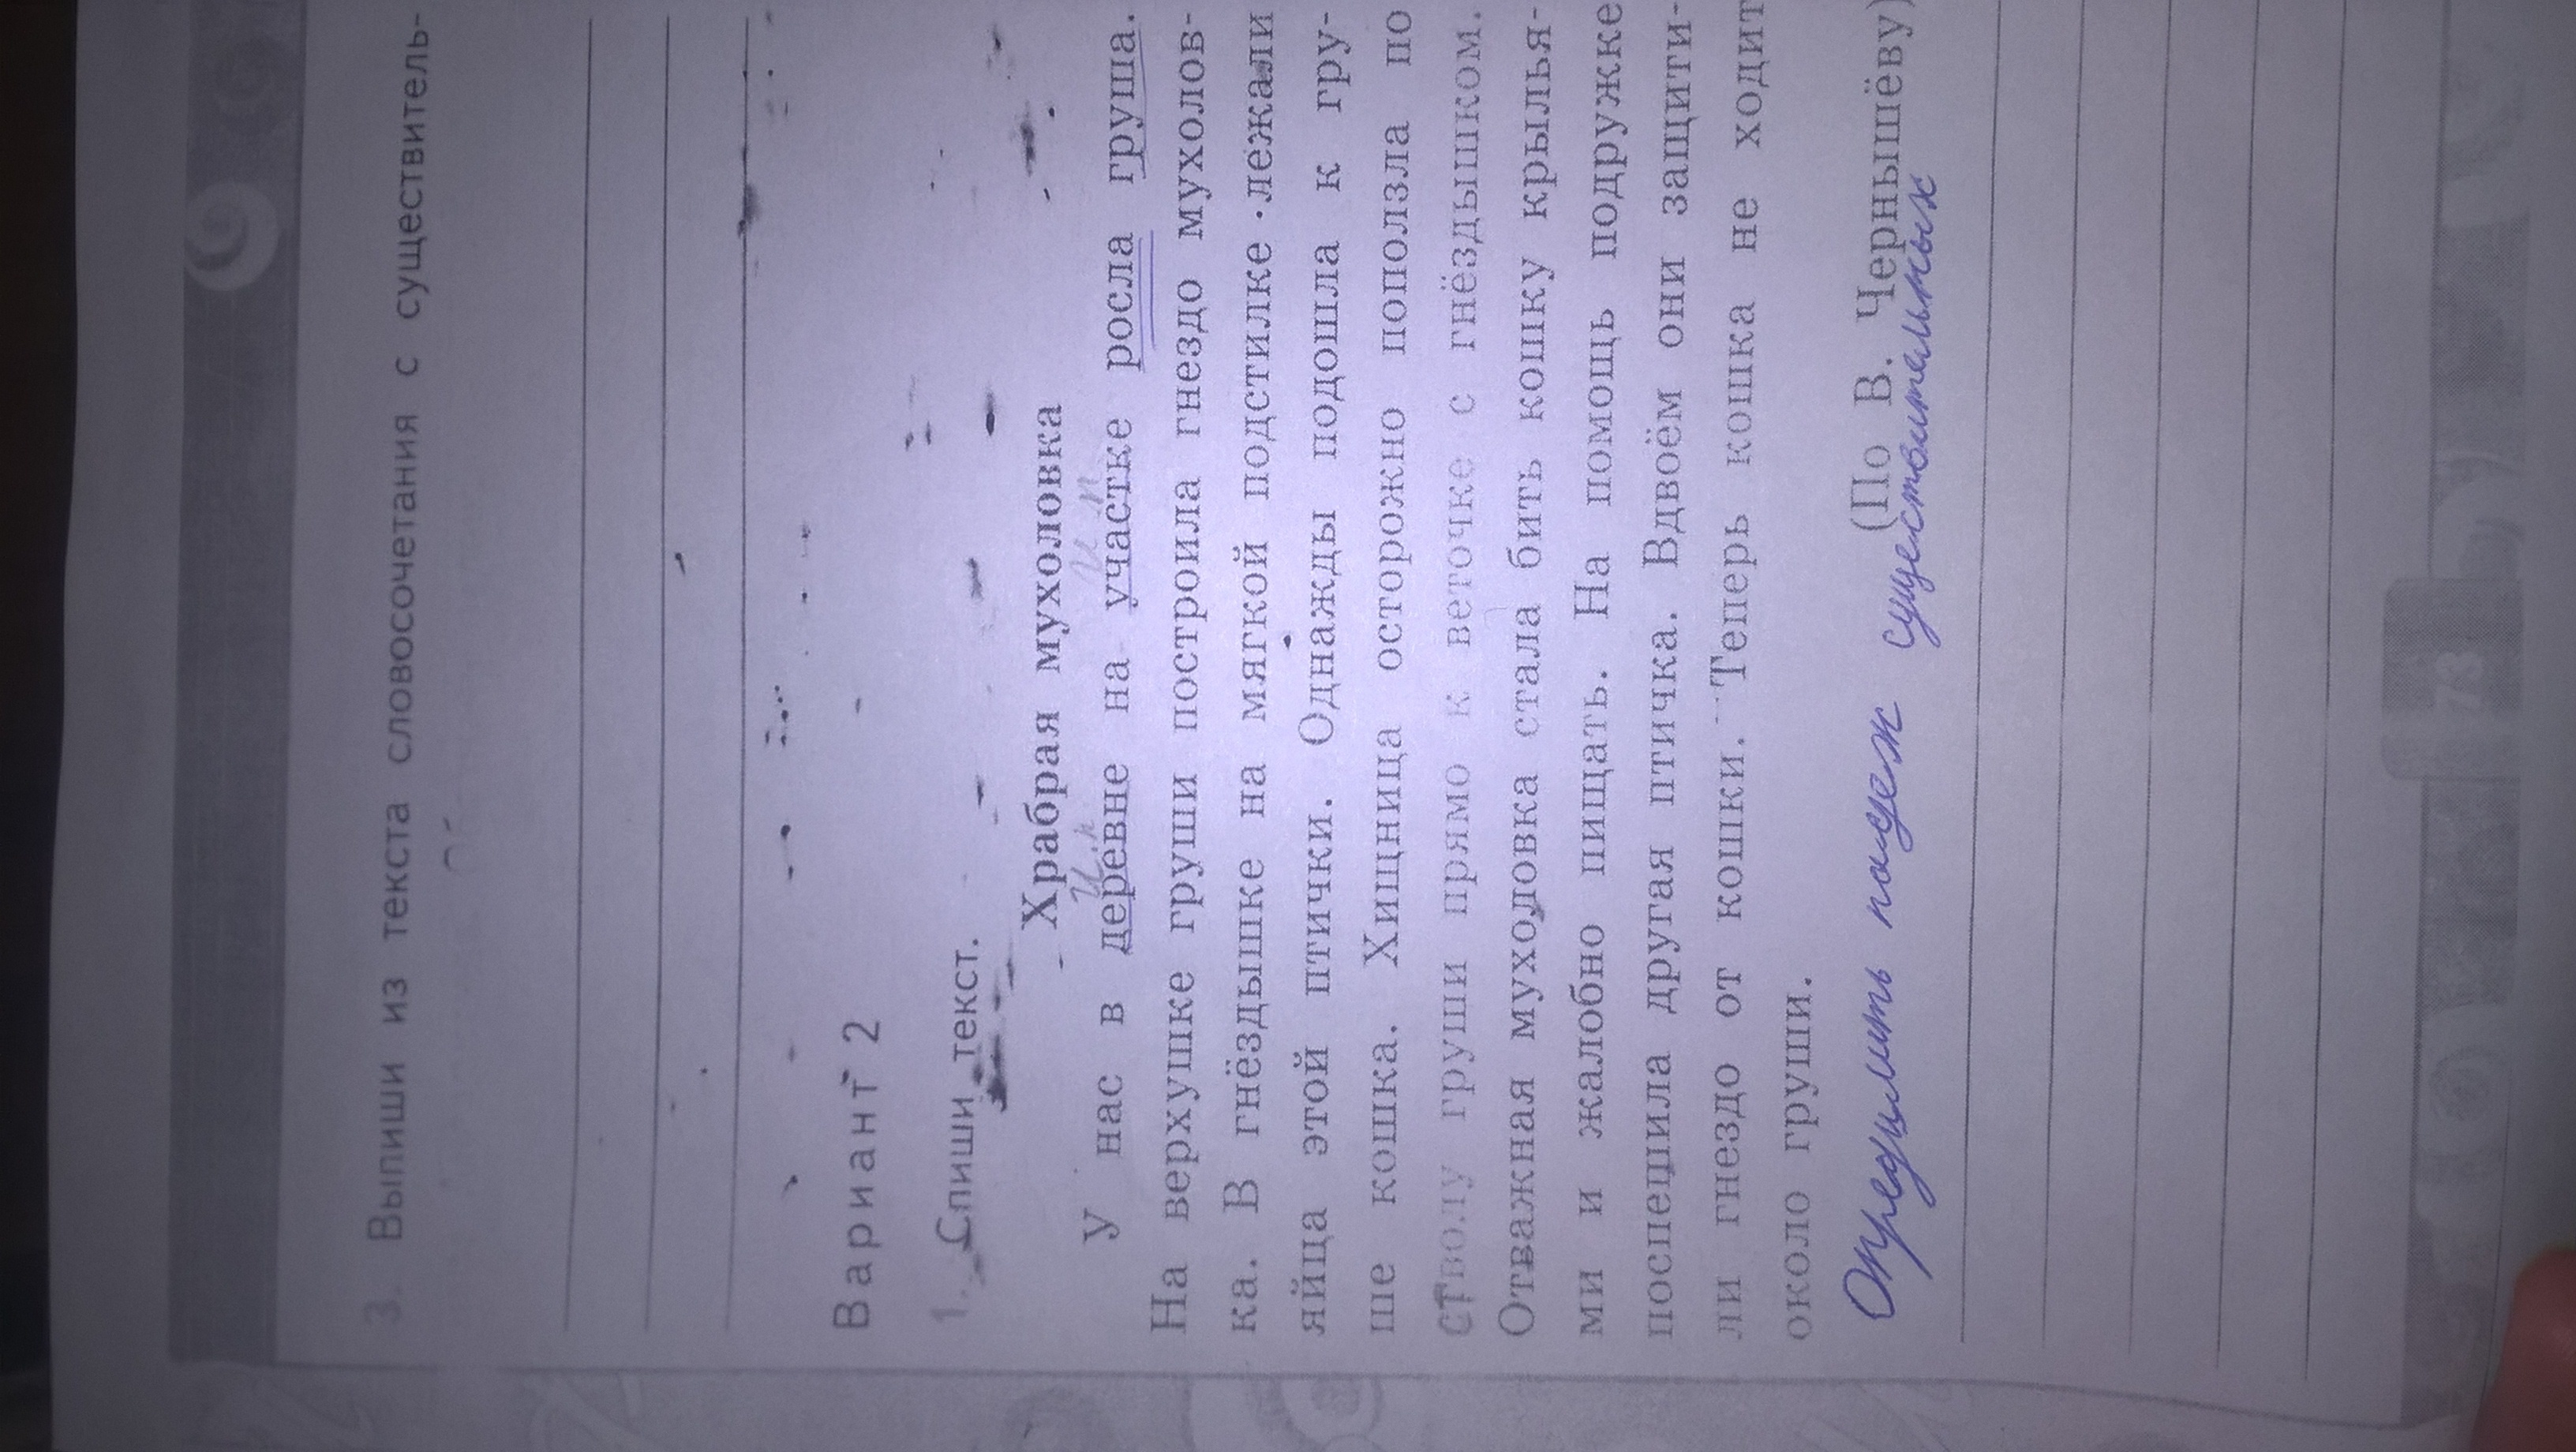 3. Выпиши из текста словосочетания с существитель-
Вариант 2
1. Спиши текст.
Храбрая мухоловка
У нас в деревне на участке росла груша.
На верхушке груши построила гнездо мухолов-
ка. В гнёздышке на мягкой подстилке лежали
яйца этой птички. Однажды подошла к гру-
ше кошка. Хищница осторожно поползла по
стволу груши прямо к веточке с гнёздышком.
Отважная мухоловка стала бить кошку крылья-
ми и жалобно пищать. На помощь подружке
поспешила другая птичка. Вдвоём они защити-
ли гнездо от кошки. Теперь кошка не ходит
около груши.
(По В. Чернышёву)
Определить падеж существительных
73